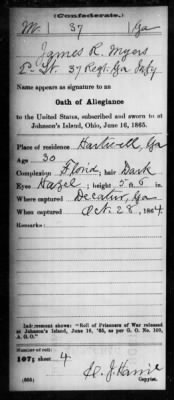 (Confederate.)
M. | 37 | Ga
James R. Myers
2d Lt. 37 Regt. Ga Inf'y
Name appears as signature to an
Oath of Allegiance
to the United States, subscribed and sworn to at
Johnson's Island, Ohio, June 16, 1865.
Place of residence Hartwell, Ga
Age 30
Complexion Florid; hair Dark
Eyes Hazel; height 5 ft. 6 in.
Where captured Decatur, Ga
When captured Oct. 28, 1864
Remarks:
Indorsement shows: "Roll of Prisoners of War released
at Johnson's Island, June 16, '65, as per G. O. No. 109,
A. G. O."
Number of roll:
107; sheet 4
(655)
Copyist.